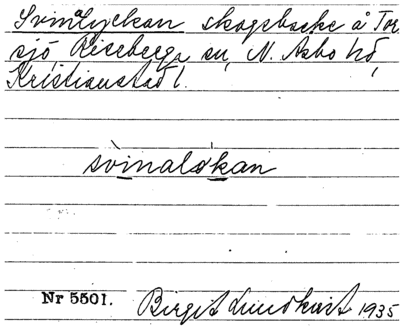 Svinalyckan skogsbacke å Tor
sjö Riseberga sn, N. Åsbo hd,
Kristianstad l.
svinalökan
Nr 5501. Birgit Lundkvist 1935